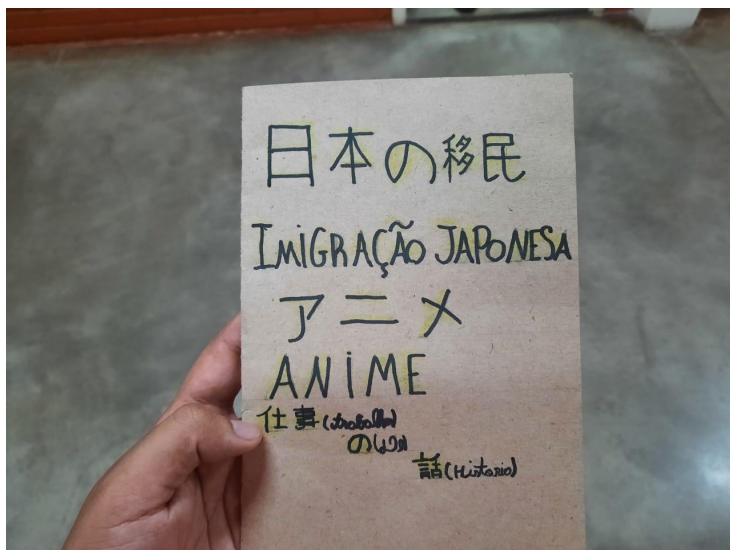 日本の移民
IMIGRAÇÃO JAPONESA
アニメ
ANIME
仕事 (trabalho)
の
話 (Historia)